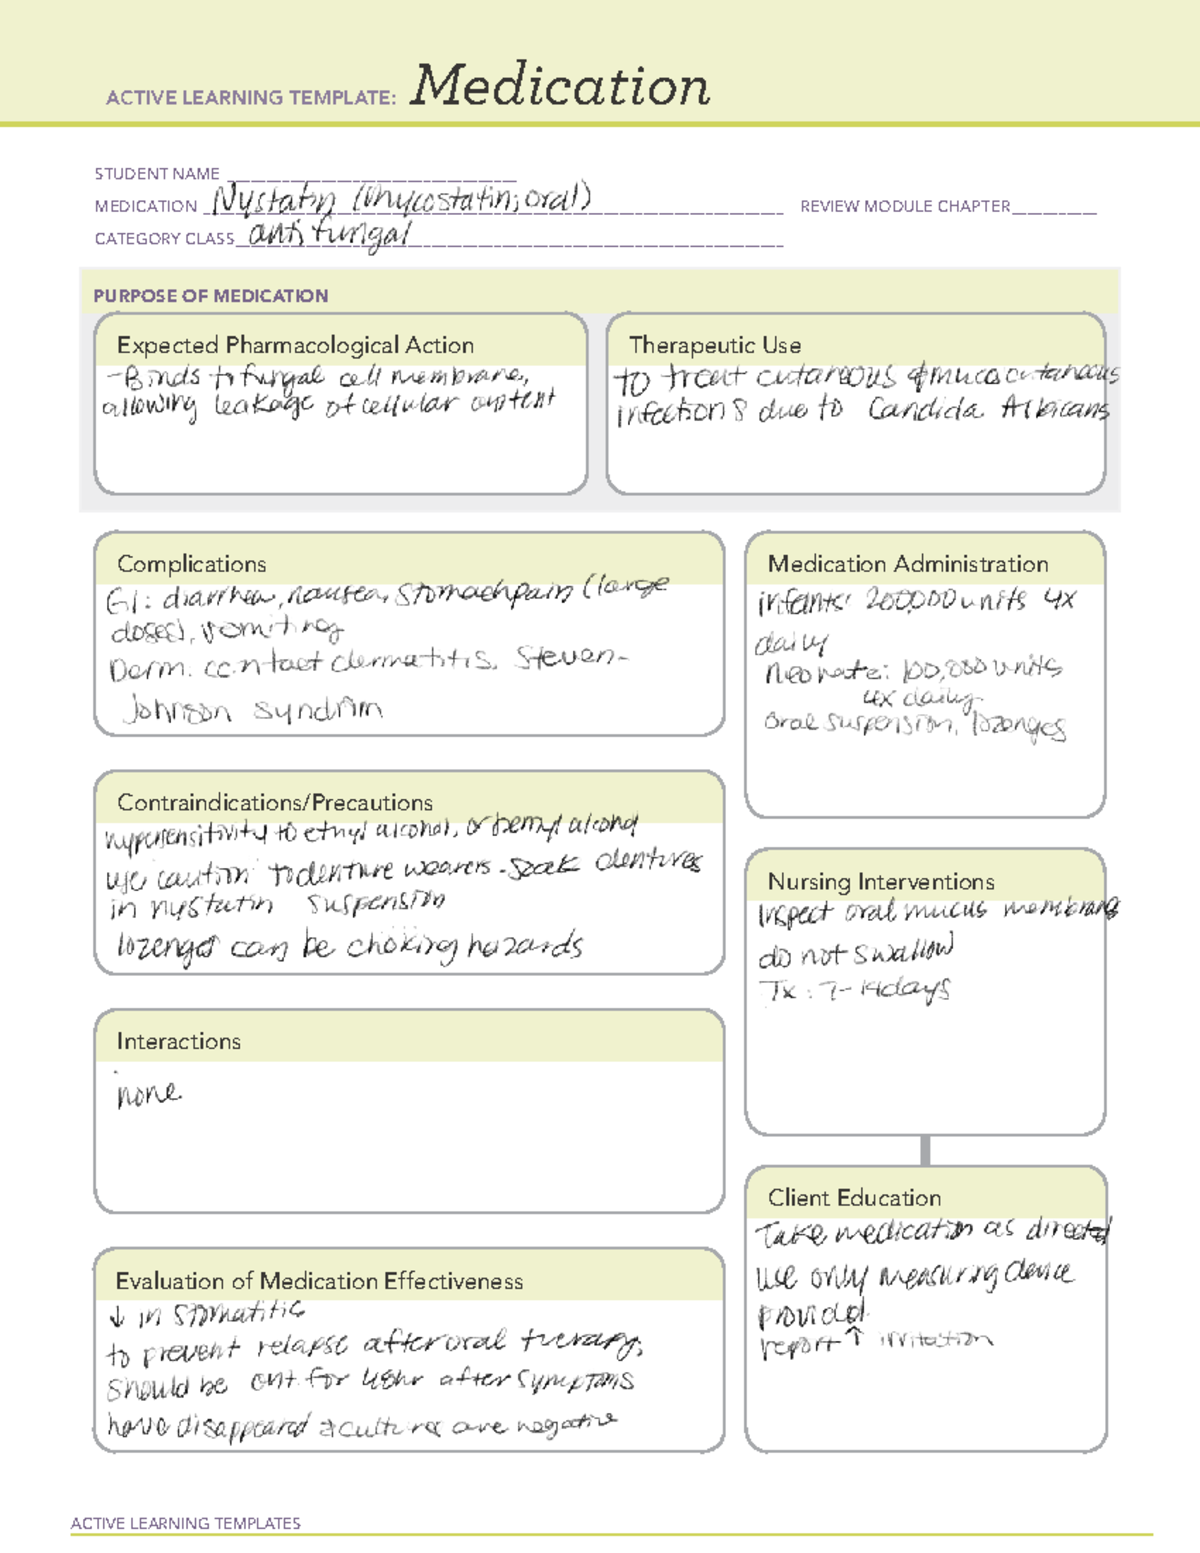 ACTIVE LEARNING TEMPLATE: Medication
STUDENT NAME
MEDICATION Nystatin (Mycostatin; oral) REVIEW MODULE CHAPTER
CATEGORY CLASS antifungal
PURPOSE OF MEDICATION
Expected Pharmacological Action
- Binds to fungal cell membrane,
allowing leakage of cellular content
Therapeutic Use
to treat cutaneous & mucocutaneous
infections due to Candida Albicans
Complications
GI: diarrhea, nausea, stomach pain (large
doses), vomiting
Derm: contact dermatitis, Steven-
Johnson syndrim
Medication Administration
infants: 200,000 units 4x
daily
Neonate: 100,000 units
4x daily
oral suspension, lozenges
Contraindications/Precautions
hypersensitivity to ethyl alcohol, or benzyl alcohol
use caution to denture wearers - soak dentures
in nystatin suspension
lozenges can be choking hazards
Nursing Interventions
Inspect oral mucus membranes
do not swallow
Tx: 7-14days
Interactions
none
Client Education
Take medication as directed
use only measuring device
provided
report ↑ irritation
Evaluation of Medication Effectiveness
↓ in stomatitis
to prevent relapse after oral therapy,
should be cnt. for 48hr after symptoms
have disappeared & cultures are negative
ACTIVE LEARNING TEMPLATES